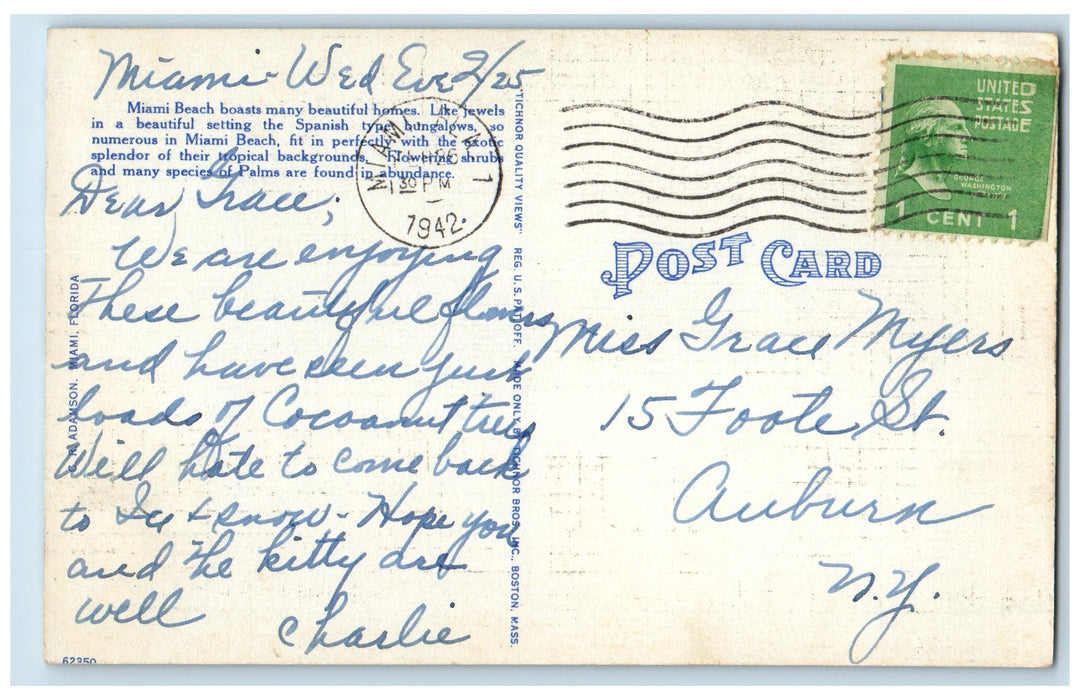 Miami - Wed Eve 2/25
Miami Beach boasts many beautiful homes. Like jewels
in a beautiful setting the Spanish type bungalows, so
numerous in Miami Beach, fit in perfectly with the exotic
splendor of their tropical backgrounds. Flowering shrubs
and many species of Palms are found in abundance.
Dear Grace;
We are enjoying
These beautiful flowers
and have seen just
loads of Cocoanut trees
Will hate to come back
to Ice & snow - Hope you
and the kitty are
well
Charlie
ADAMSON, MIAMI, FLORIDA
62350
"TICHNOR QUALITY VIEWS" REG. U. S. PAT. OFF. MADE ONLY BY TICHNOR BROS. INC., BOSTON, MASS.
MIAMI
30 PM
1942
1
UNITED
STATES
POSTAGE
GEORGE
WASHINGTON
1 CENT 1
POST CARD
Miss Grace Myers
15 Foote St.
Auburn
N.Y.